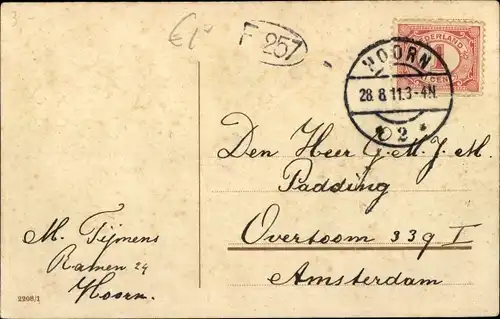 3
€1°
F 257
NEDERLAND
1
CENT
HOORN
28.8.11.3-4N
2
Den Heer G. M. J. M.
Padding
Overtoom 339 I
Amsterdam
M. Tijmens
Ramen 24
Hoorn.
2268/1